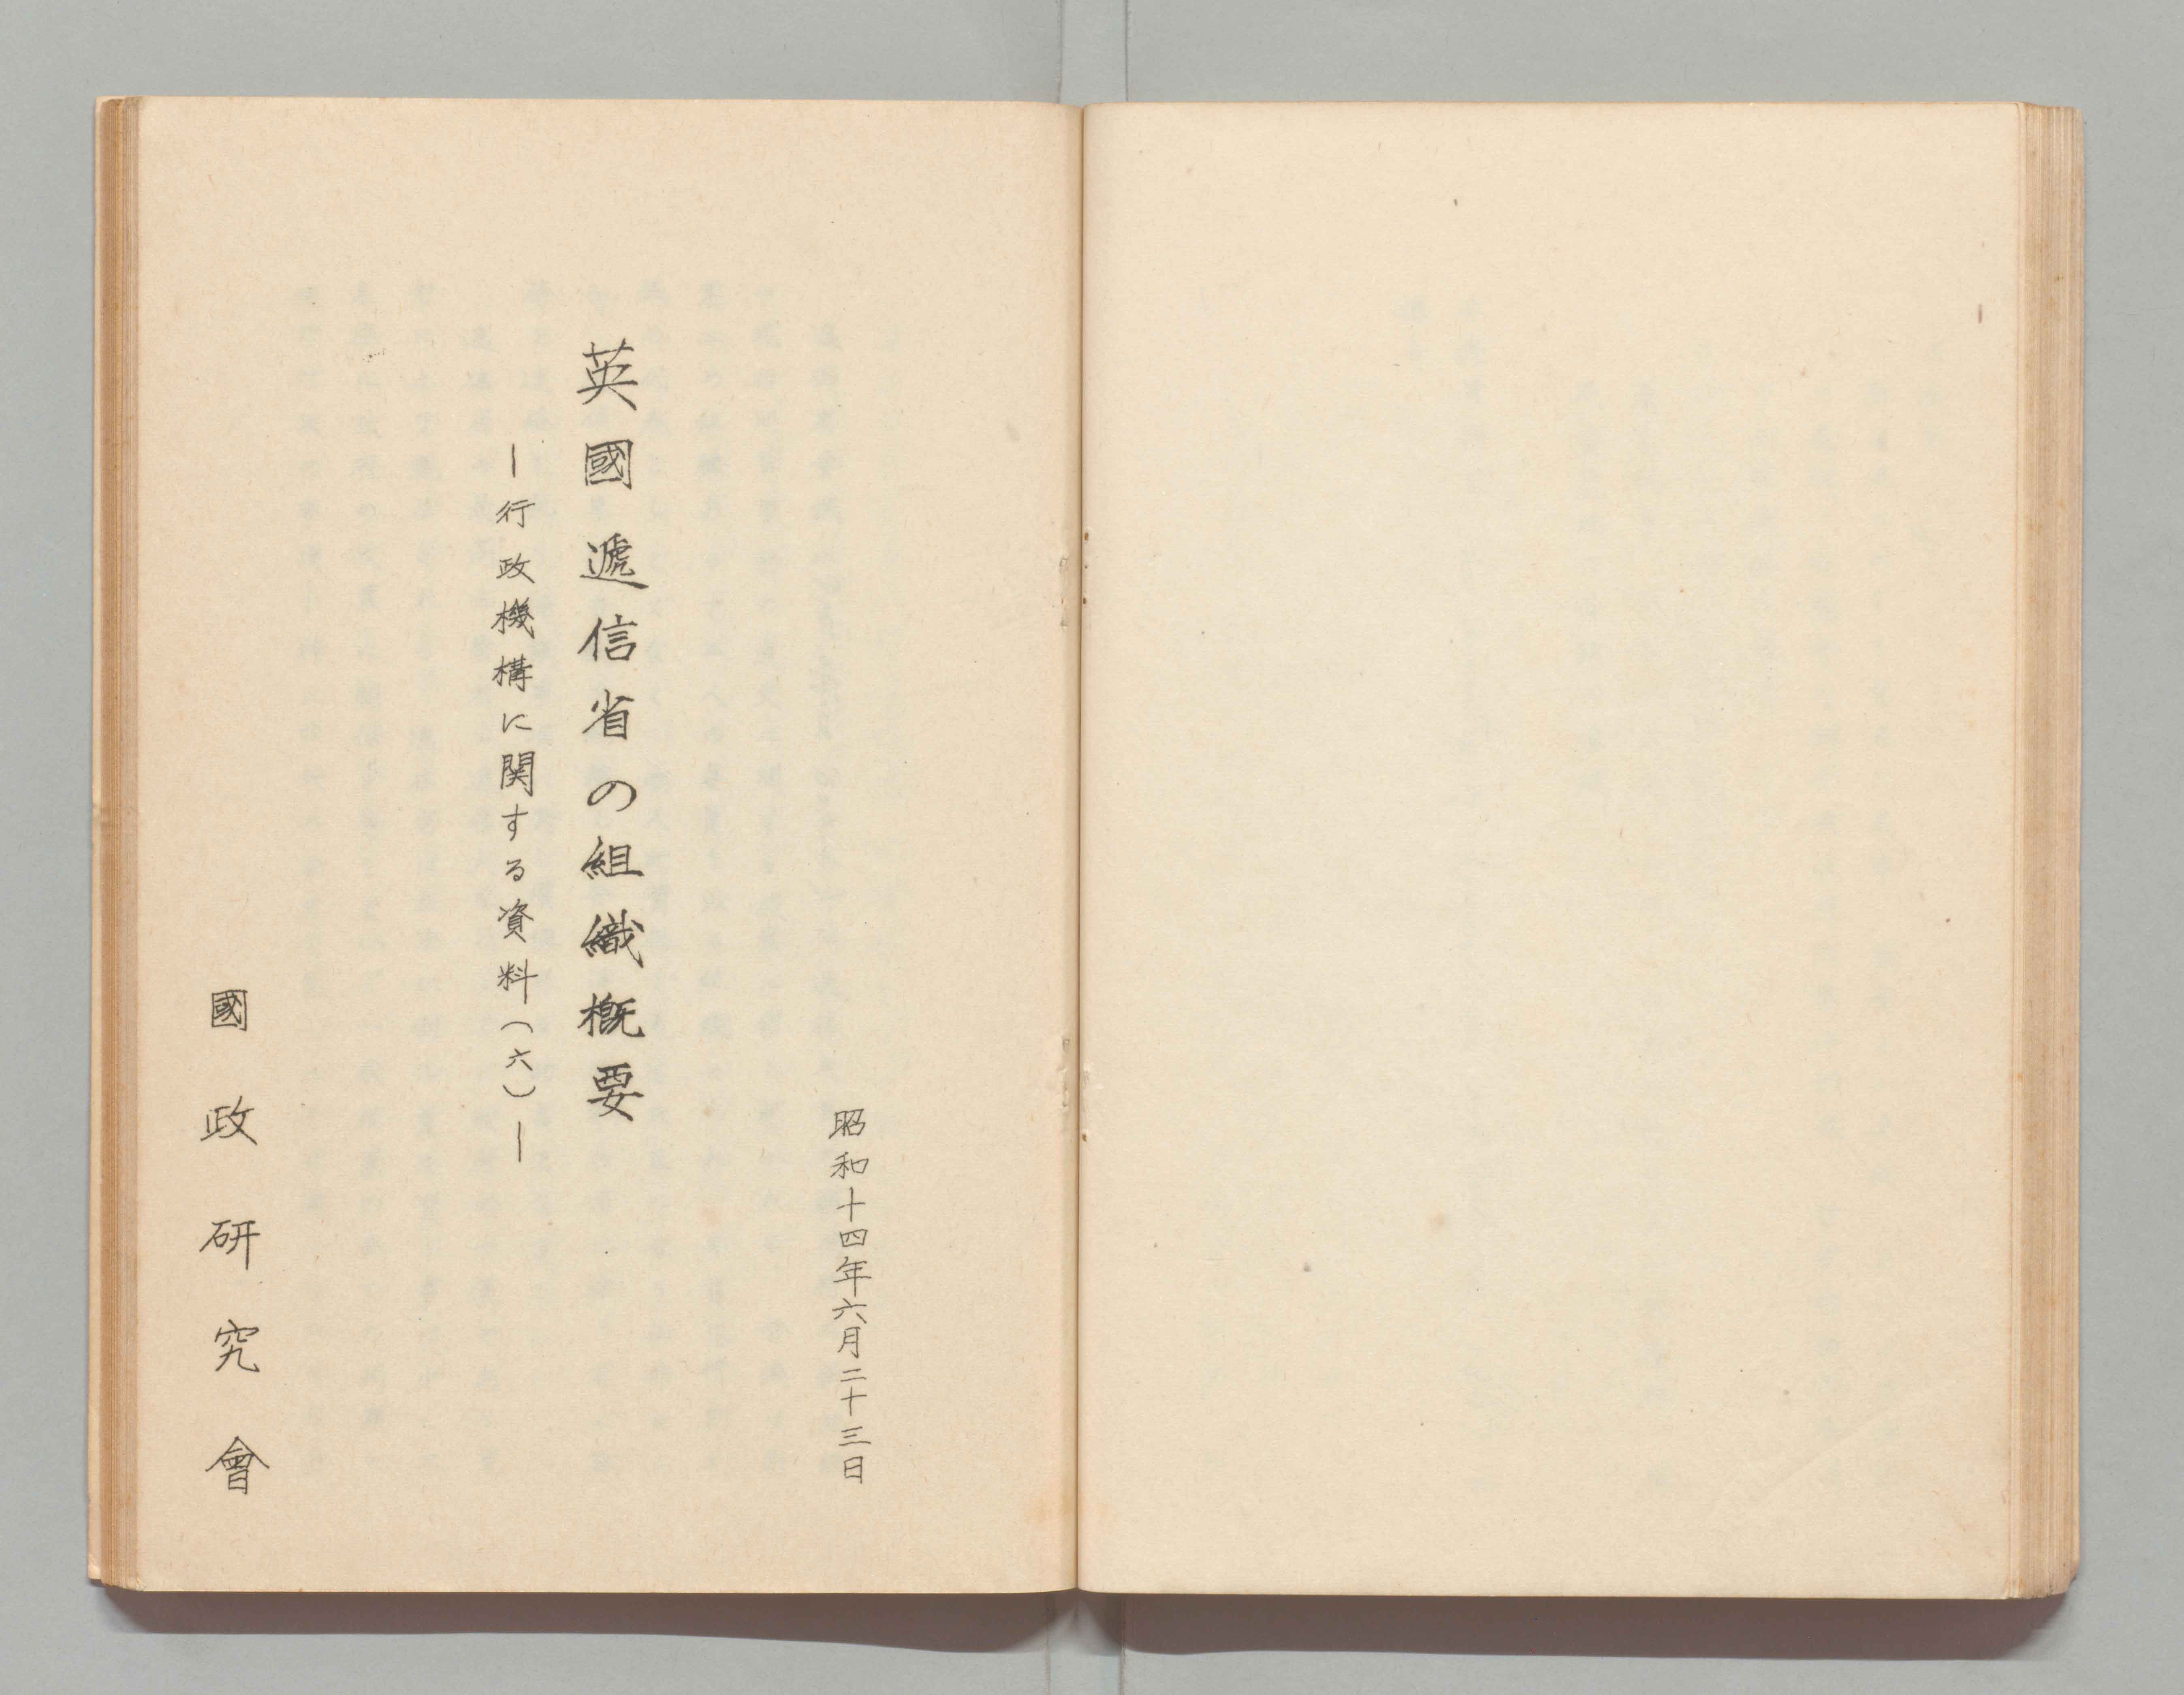 昭和十四年六月二十三日
英國遞信省の組織概要
―行政機構に関する資料(六)―
國政研究會